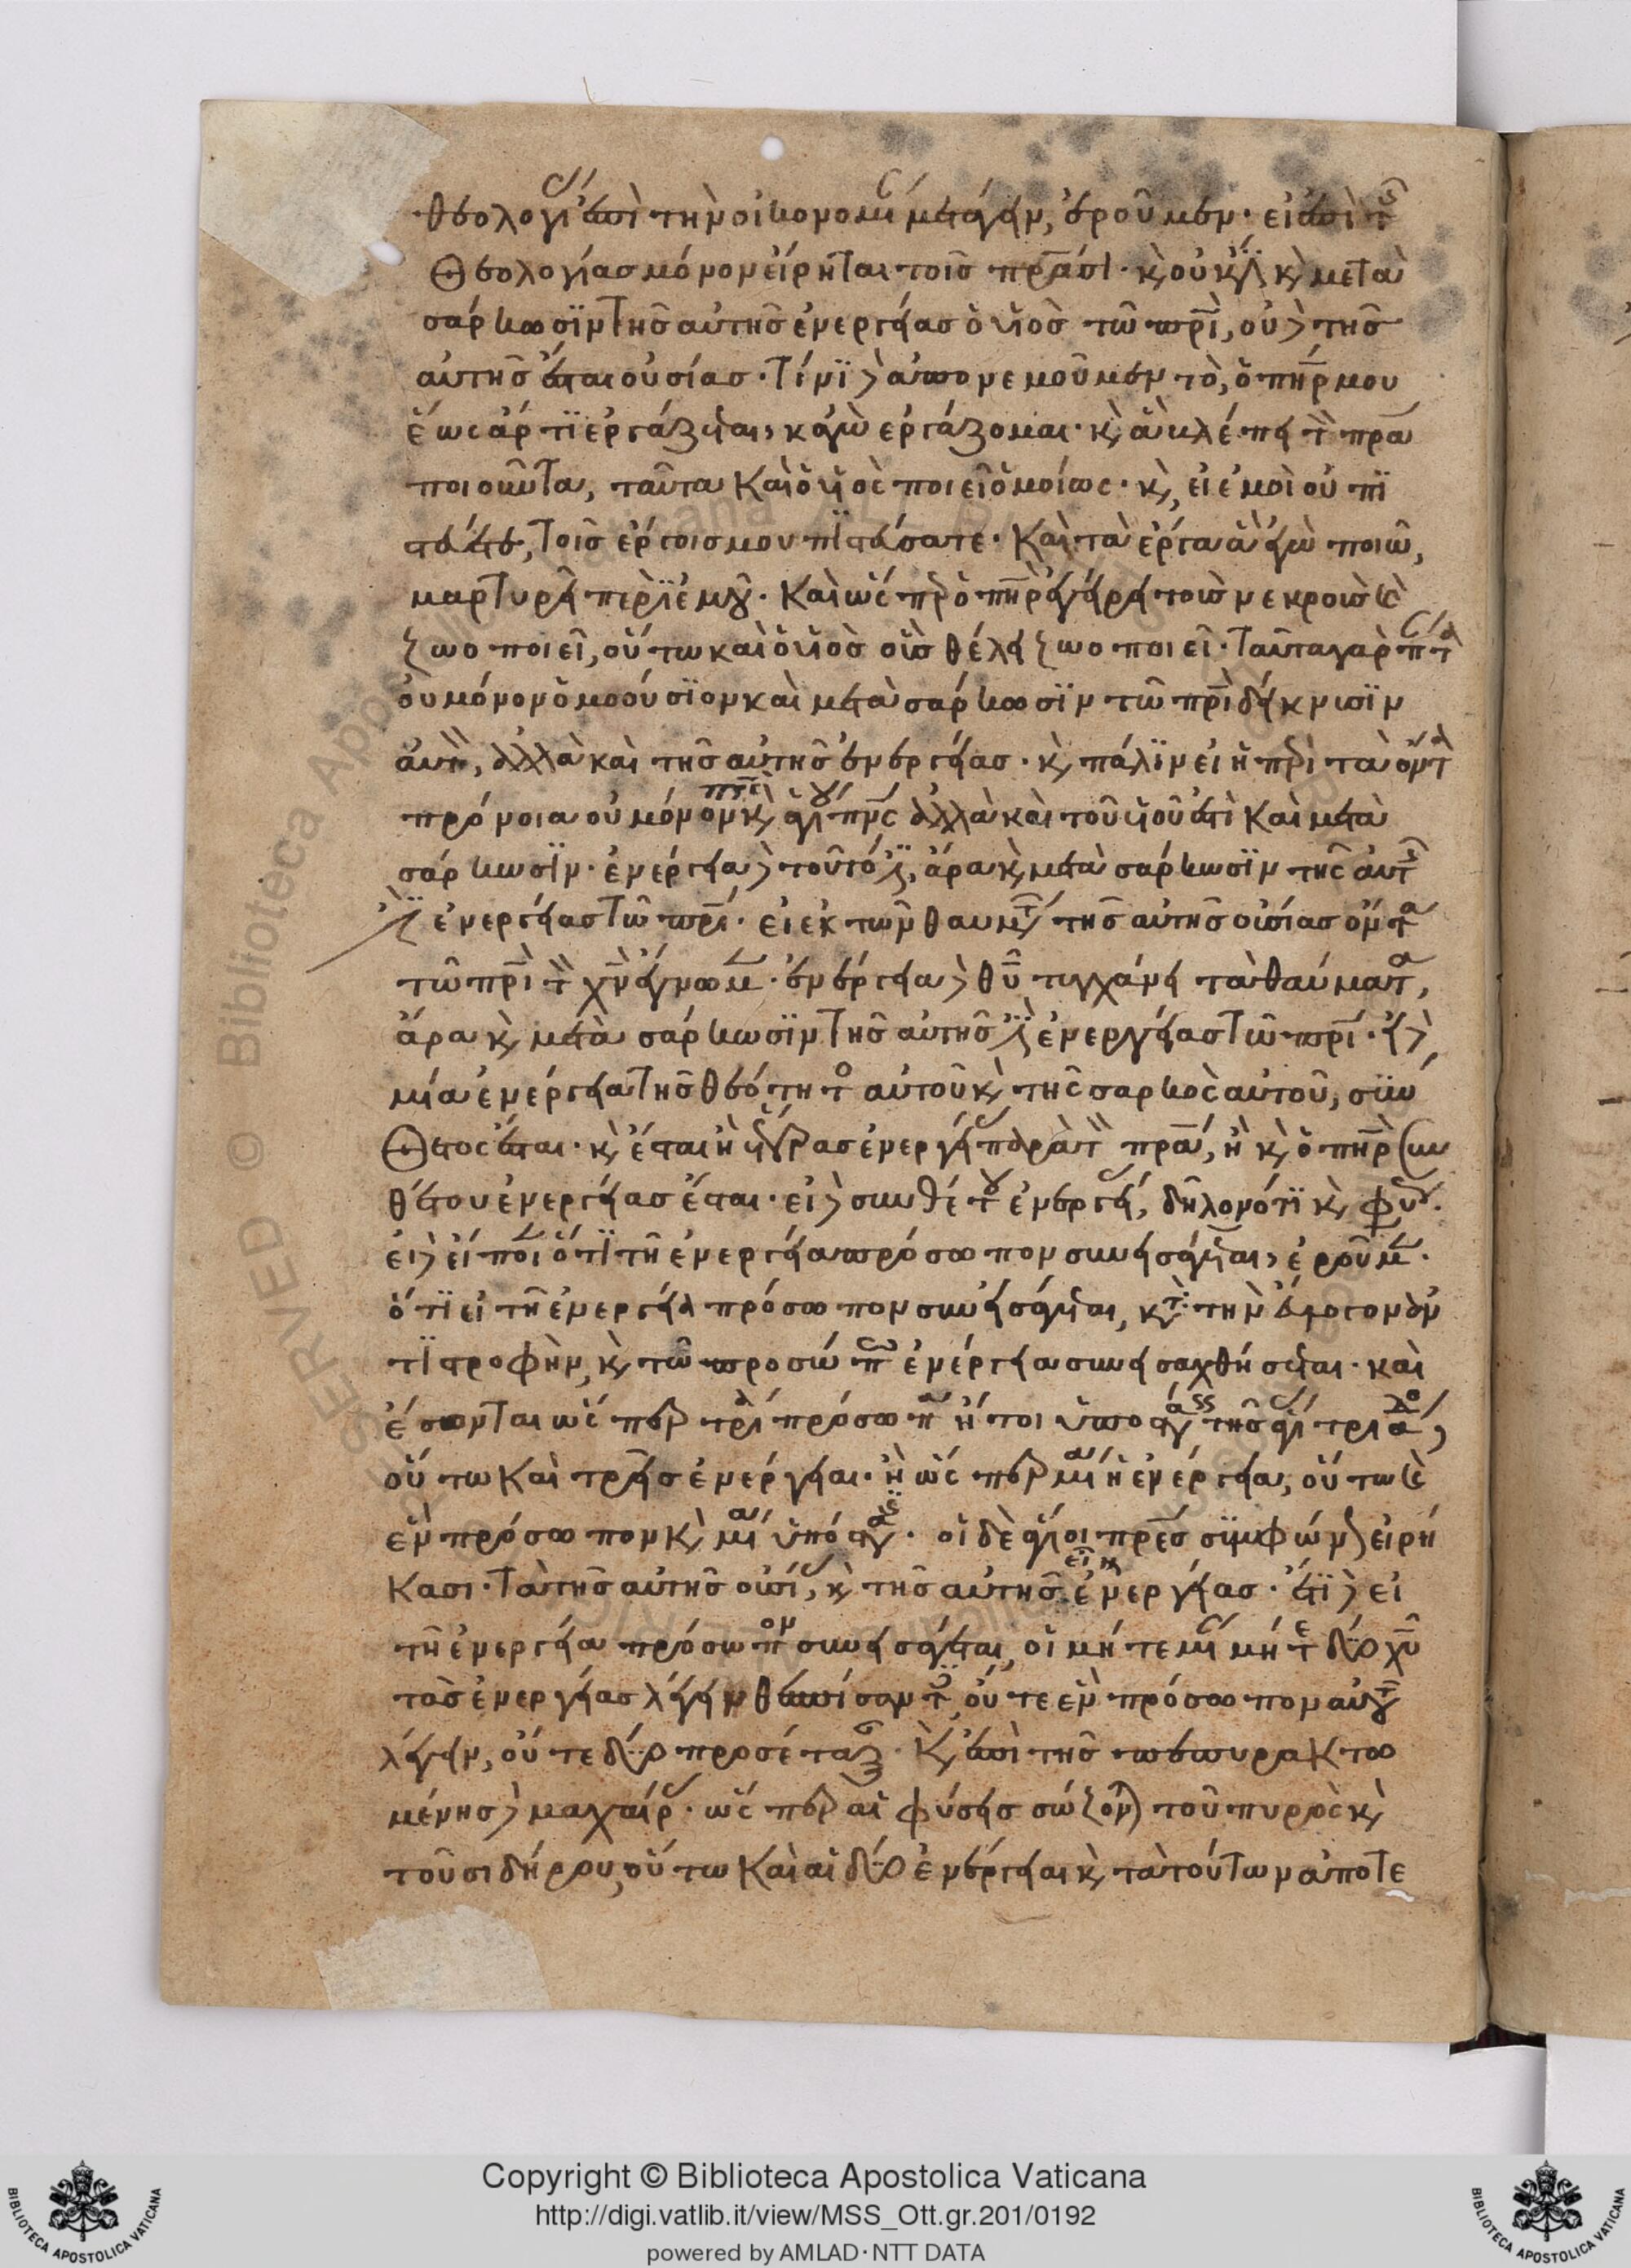 θεολογίας ἐπὶ τὴν οἰκονομίας μετάγειν, ἐροῦμεν· εἰ ἐπὶ τῆς
θεολογίας μόνον εἴρηται τοῖς πατράσι· καὶ οὐκ ἔστι καὶ μετὰ
σάρκωσιν τῆς αὐτῆς ἐνεργείας ὁ υἱὸς τῷ πατρὶ, οὐδὲ τῆς
αὐτῆς ἔσται οὐσίας· τίνι δὲ ἀπονεμοῦμεν τὸ, ὁ πατήρ μου
ἕως ἄρτι ἐργάζεται, κἀγὼ ἐργάζομαι· καὶ ἃ βλέπει τὸν πατέρα
ποιοῦντα, ταῦτα καὶ ὁ υἱὸς ποιεῖ ὁμοίως· καὶ, εἰ ἐμοὶ οὐ πι
στεύετε, τοῖς ἔργοις μου πιστεύσατε· καὶ τὰ ἔργα ἃ ἐγὼ ποιῶ,
μαρτυρεῖ περὶ ἐμοῦ· καὶ ὥσπερ ὁ πατὴρ ἐγείρει τοὺς νεκροὺς καὶ
ζωοποιεῖ, οὕτω καὶ ὁ υἱὸς οὓς θέλει ζωοποιεῖ· ταῦτα γὰρ πάντα
οὐ μόνον ὁμοούσιον καὶ μετὰ σάρκωσιν τῷ πατρὶ δείκνυσιν
αὐτὸν, ἀλλὰ καὶ τῆς αὐτῆς ἐνεργείας· καὶ πάλιν εἰ ἡ περὶ τὰ ὄντα
πρόνοια οὐ μόνον πατρὸς καὶ ἁγίου πνεύματος ἀλλὰ καὶ τοῦ υἱοῦ ἐστὶ καὶ μετὰ
σάρκωσιν· ἐνέργεια δὲ τοῦτό ἐστιν, ἄρα καὶ μετὰ σάρκωσιν τῆς αὐτῆς
ἐστὶν ἐνεργείας τῷ πατρί· εἰ ἐκ τῶν θαυμάτων τῆς αὐτῆς οὐσίας ὄντα
τῷ πατρὶ τὸν χριστὸν ἔγνωμεν· ἐνέργεια δὲ θεοῦ τυγχάνει τὰ θαύματα,
ἄρα καὶ μετὰ σάρκωσιν τῆς αὐτῆς ἐστὶν ἐνεργείας τῷ πατρί· εἰ δὲ
μία ἐνέργεια τῆς θεότητος αὐτοῦ καὶ τῆς σαρκὸς αὐτοῦ, σύν
θετος ἔσται· καὶ ἔσται ἢ ἑτέρας ἐνεργείας παρὰ τὸν πατέρα, ἢ καὶ ὁ πατὴρ συν
θέτου ἐνεργείας ἔσται· εἰ δὲ συνθέτου ἐνεργείας, δηλονότι καὶ φύσεως·
εἰ δὲ εἴποιεν ὅτι τῇ ἐνεργείᾳ πρόσωπον συνεισάγεται, ἐροῦμεν·
ὅτι εἰ τῇ ἐνεργείᾳ πρόσωπον συνεισάγεται, κατὰ τὴν εὔλογον ἀν
τιστροφὴν, καὶ τῷ προσώπῳ ἐνέργεια συνεισαχθήσεται· καὶ
ἔσονται ὥσπερ τρία πρόσωπα ἤτοι ὑποστάσεις τῆς ἁγίας τριάδος,
οὕτω καὶ τρεῖς ἐνέργειαι· ἢ ὥσπερ μία ἡ ἐνέργεια, οὕτω καὶ
ἓν πρόσωπον καὶ μία ὑπόστασις· οἱ δὲ ἅγιοι πατέρες συμφώνως εἰρή
κασι· τὰ τῆς αὐτῆς οὐσίας, καὶ τῆς αὐτῆς εἶναι ἐνεργείας· ἔτι δὲ εἰ
τῇ ἐνεργείᾳ πρόσωπον συνεισάγεται, οἱ μήτε μίαν μήτε δύο χριστοῦ
τὰς ἐνεργείας λέγειν θεσπίσαντες, οὔτε ἓν πρόσωπον αὐτοῦ
λέγειν, οὔτε δύο προσέταξαν· καὶ ἐπὶ τῆς πεπυρακτω
μένης δὲ μαχαίρας· ὥσπερ αἱ φύσεις σώζονται τοῦ πυρὸς καὶ
τοῦ σιδήρου, οὕτω καὶ αἱ δύο ἐνέργειαι καὶ τὰ τούτων ἀποτε
Copyright © Biblioteca Apostolica Vaticana
http://digi.vatlib.it/view/MSS_Ott.gr.201/0192
powered by AMLAD·NTT DATA